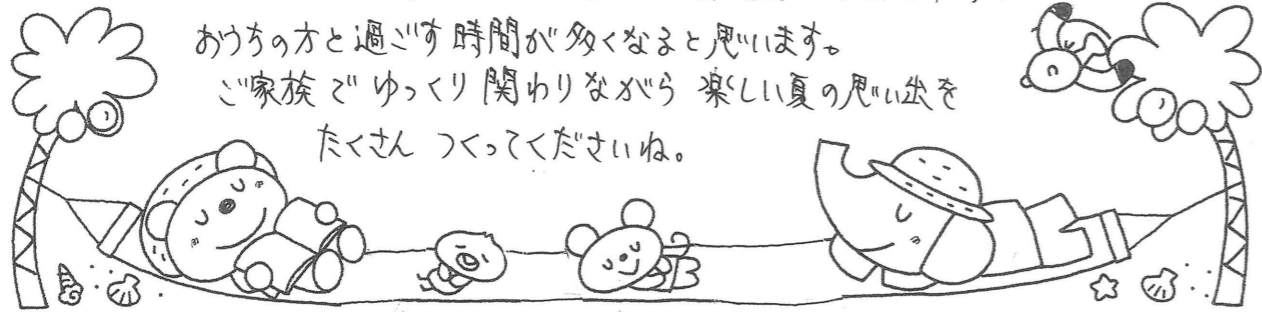 おうちの方と過ごす時間が多くなると思います。
ご家族でゆっくり関わりながら楽しい夏の思い出を
たくさんつくってくださいね。